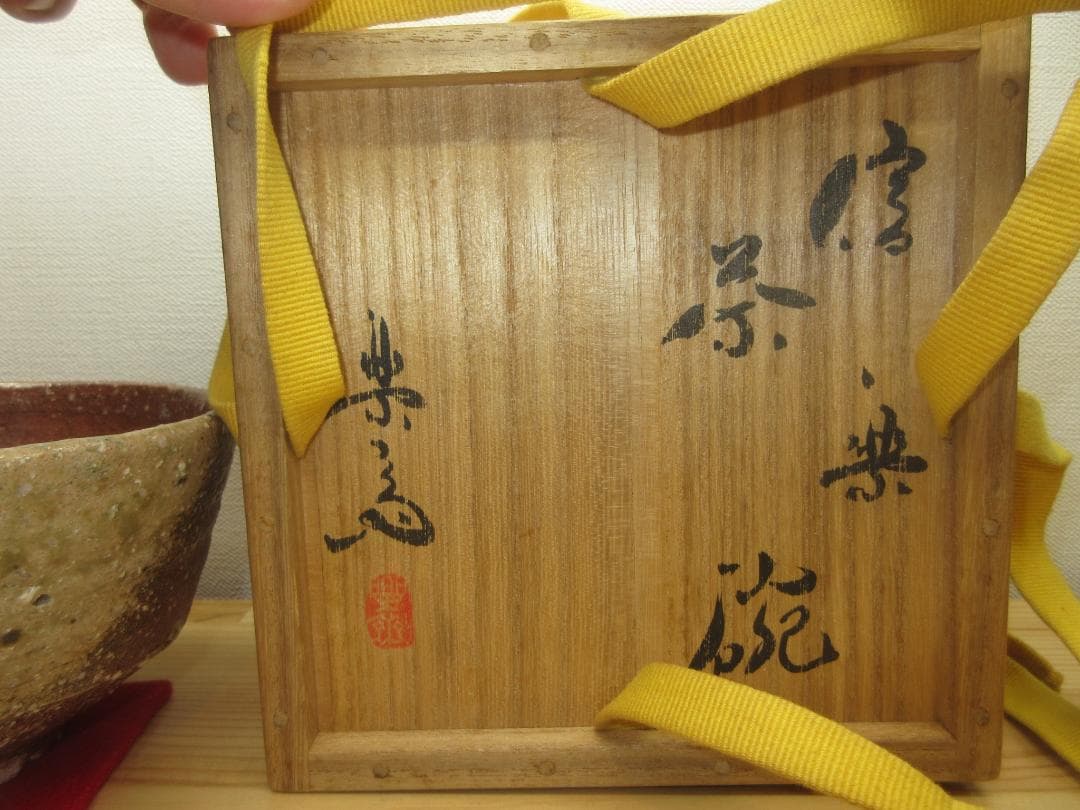 信楽
茶碗
楽斎